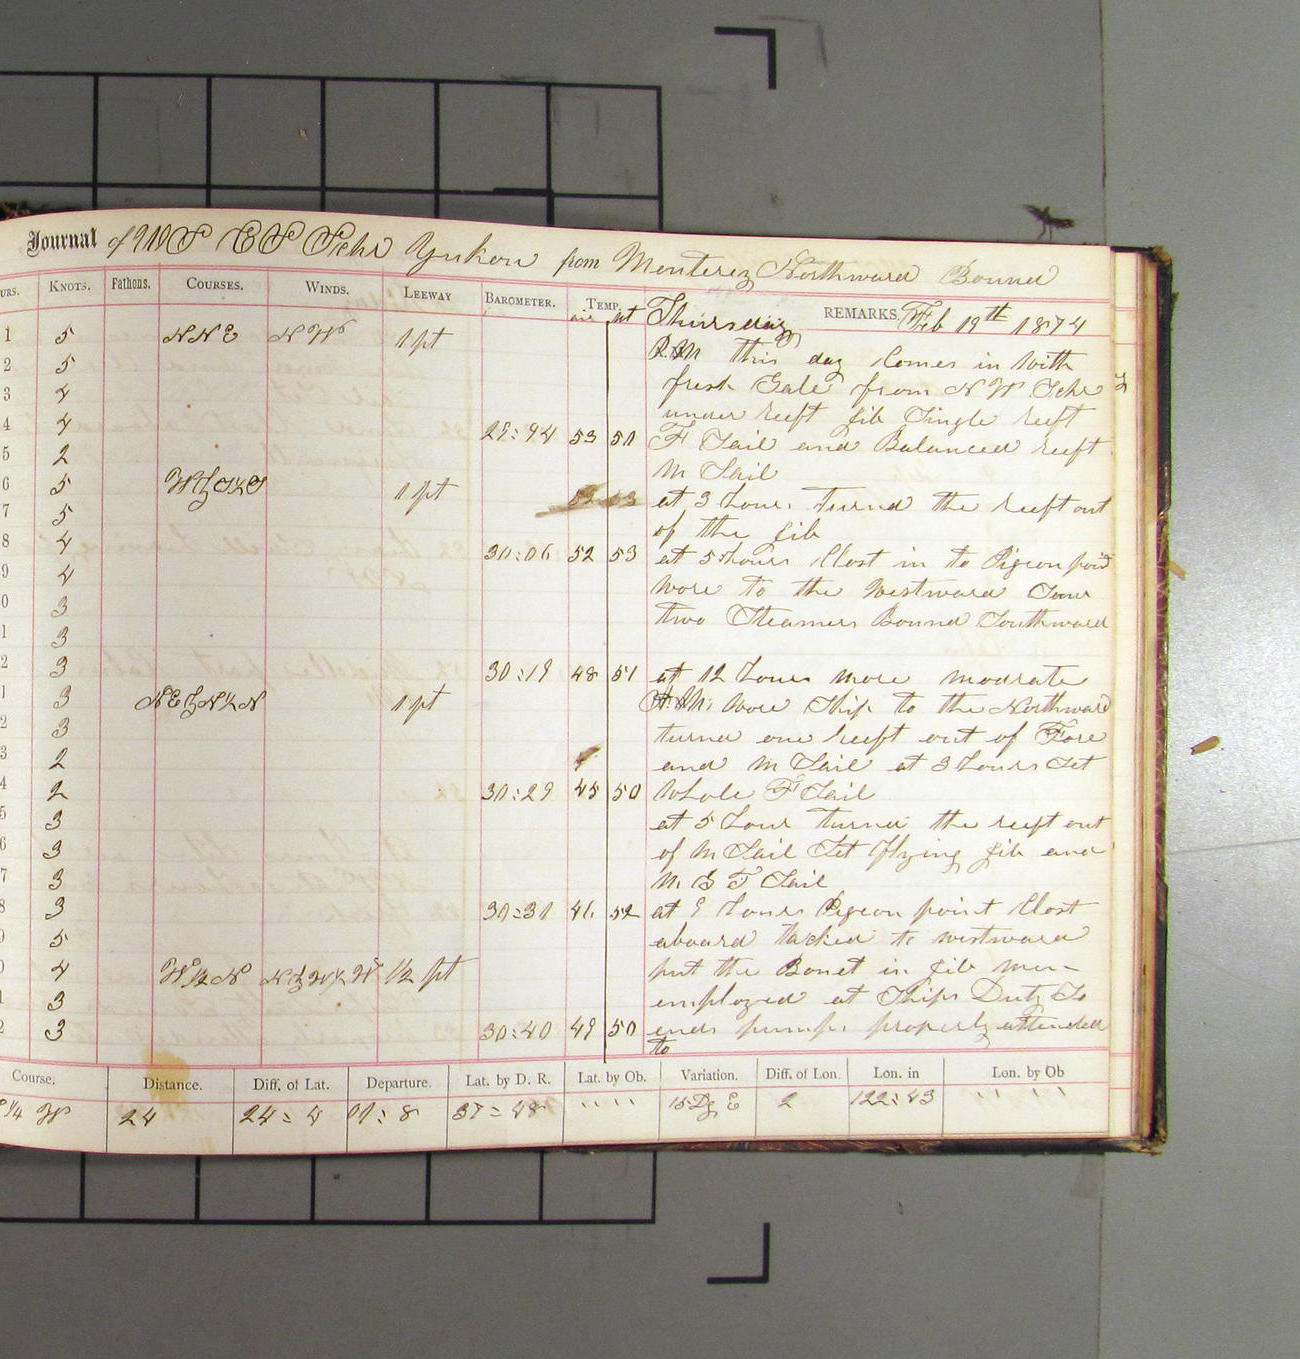 Journal of U S C S Schr Yukon from Monterey Northward Bound
URS. KNOTS. Fathoms. COURSES. WINDS. LEEWAY BAROMETER. TEMP. air wt Thursday REMARKS, Feb 19th 1874
1 5 NNE NW 1 pt
P.M this day Comes in With
2 5
fresh Gale from N W Schr
3 4
under reeft Jib Single reeft
4 4 29:94 53 51 F Sail and Balanced reeft
5 2
M Sail
6 5 1 pt
at 3 Hours turned the reeft out
7 5
of the Jib
8 4 30:06 52 53 at 5 Hours Clost in to Pigeon poin
9 4
Wore to the Westward Saw
0 3
two Steamers Bound Southward
1 3
2 3 30:19 48 51 at 12 Hours more modrate
1 3 NEbN½N 1 pt A.M. Wore Ship to the Northward
2 3
turned one reeft out of Fore
3 2
and M Sail at 3 Hours Set
4 2 30:29 45 50 Whole F Sail
5 3
at 5 Hour turned the reeft out
6 3
of M Sail Set flying Jib and
7 3
M G T Sail
8 3 30:31 46 52 at 9 Hours Pigeon point Clost
5
aboard tacked to westward
4 W½N NbW½W ½ pt
put the Bonet in Jib men
1 3
employed at Ships Duty So
2 3 30:40 49 50 ends pumps properly attended
to
Course. Distance. Diff. of Lat. Departure. Lat. by D. R. Lat. by Ob. Variation. Diff. of Lon. Lon. in Lon. by Ob
¼ W 24 24:4 01:8 37:48 " " " " 15 Dg E 2 122:43 " " " "